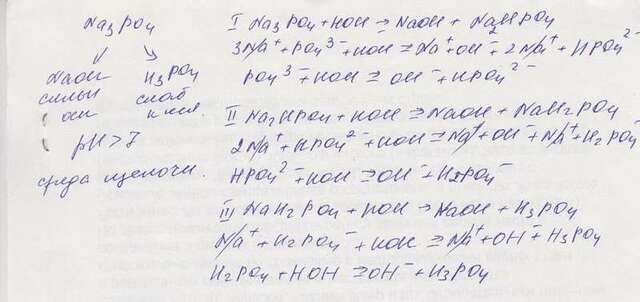 Na3PO4
NaOH H3PO4
сильн слаб
осн кисл.
pH>7
среда щелочн.
I Na3PO4 + HOH ⇒ NaOH + Na2HPO4
3Na⁺ + PO4³⁻ + HOH ⇄ Na⁺ + OH⁻ + 2Na⁺ + HPO4²⁻
PO4³⁻ + HOH ⇄ OH⁻ + HPO4²⁻
II Na2HPO4 + HOH ⇄ NaOH + NaH2PO4
2Na⁺ + HPO4²⁻ + HOH ⇄ Na⁺ + OH⁻ + Na⁺ + H2PO4⁻
HPO4²⁻ + HOH ⇄ OH⁻ + H2PO4⁻
III NaH2PO4 + HOH → NaOH + H3PO4
Na⁺ + H2PO4⁻ + HOH ⇄ Na⁺ + OH⁻ + H3PO4
H2PO4 + HOH ⇄ OH⁻ + H3PO4